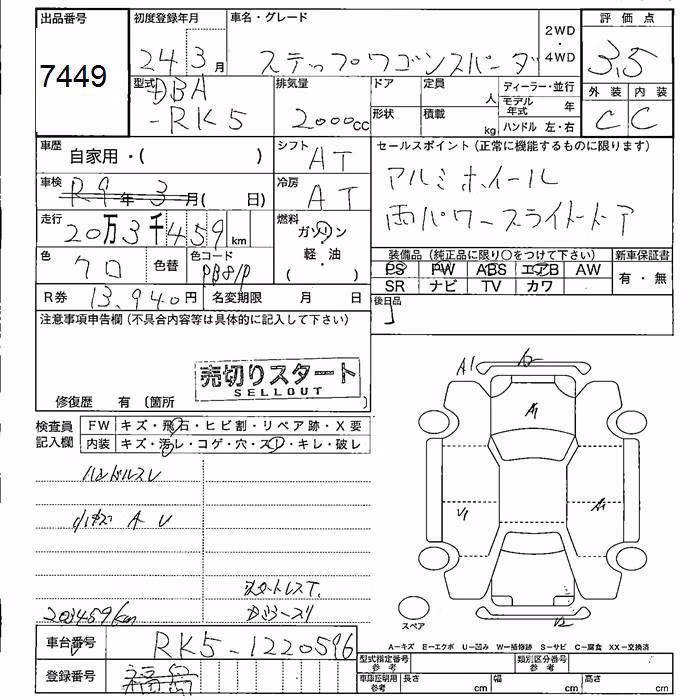 出品番号
7449
初度登録年月
24 3月
車名・グレード
ステップワゴンスパーダ
2WD
・
4WD
評価点
3.5
外装 内装
C C
型式
DBA
-RK5
排気量
2000cc
ドア
形状
定員
人
積載
kg
ディーラー・並行
モデル年式 年
ハンドル 左・右
車歴
自家用・( )
シフト
AT
セールスポイント(正常に機能するものに限ります)
アルミホイール
両パワースライドドア
車検
R9年3月( 日)
冷房
AT
走行
20万3千459km
燃料
ガソリン
軽・油
( )
色
クロ
色替
色コード
PB81P
装備品(純正品に限り○をつけて下さい)
新車保証書
PS PW ABS エアB AW
SR ナビ TV カワ
有・無
R券
13,940円
名変期限 月 日
後日品
注意事項申告欄(不具合内容等は具体的に記入して下さい)
売切りスタート
SELLOUT
修復歴 有(箇所 )
検査員
記入欄
FW キズ・飛石・ヒビ割・リペア跡・X要
内装 キズ・汚レ・コゲ・穴・スレ・キレ・破レ
ハンドルスレ
小キズ A U
スタートレスT.
203459km
A1
A2
A1
U1
A1
スペア
A=キズ E=エクボ U=凹み W=補修跡 S=サビ C=腐食 XX=交換済
車台番号
RK5-1220596
登録番号
型式指定番号
参考
類別区分番号
参考
車庫証明用
参考
長さ cm
幅 cm
高さ cm